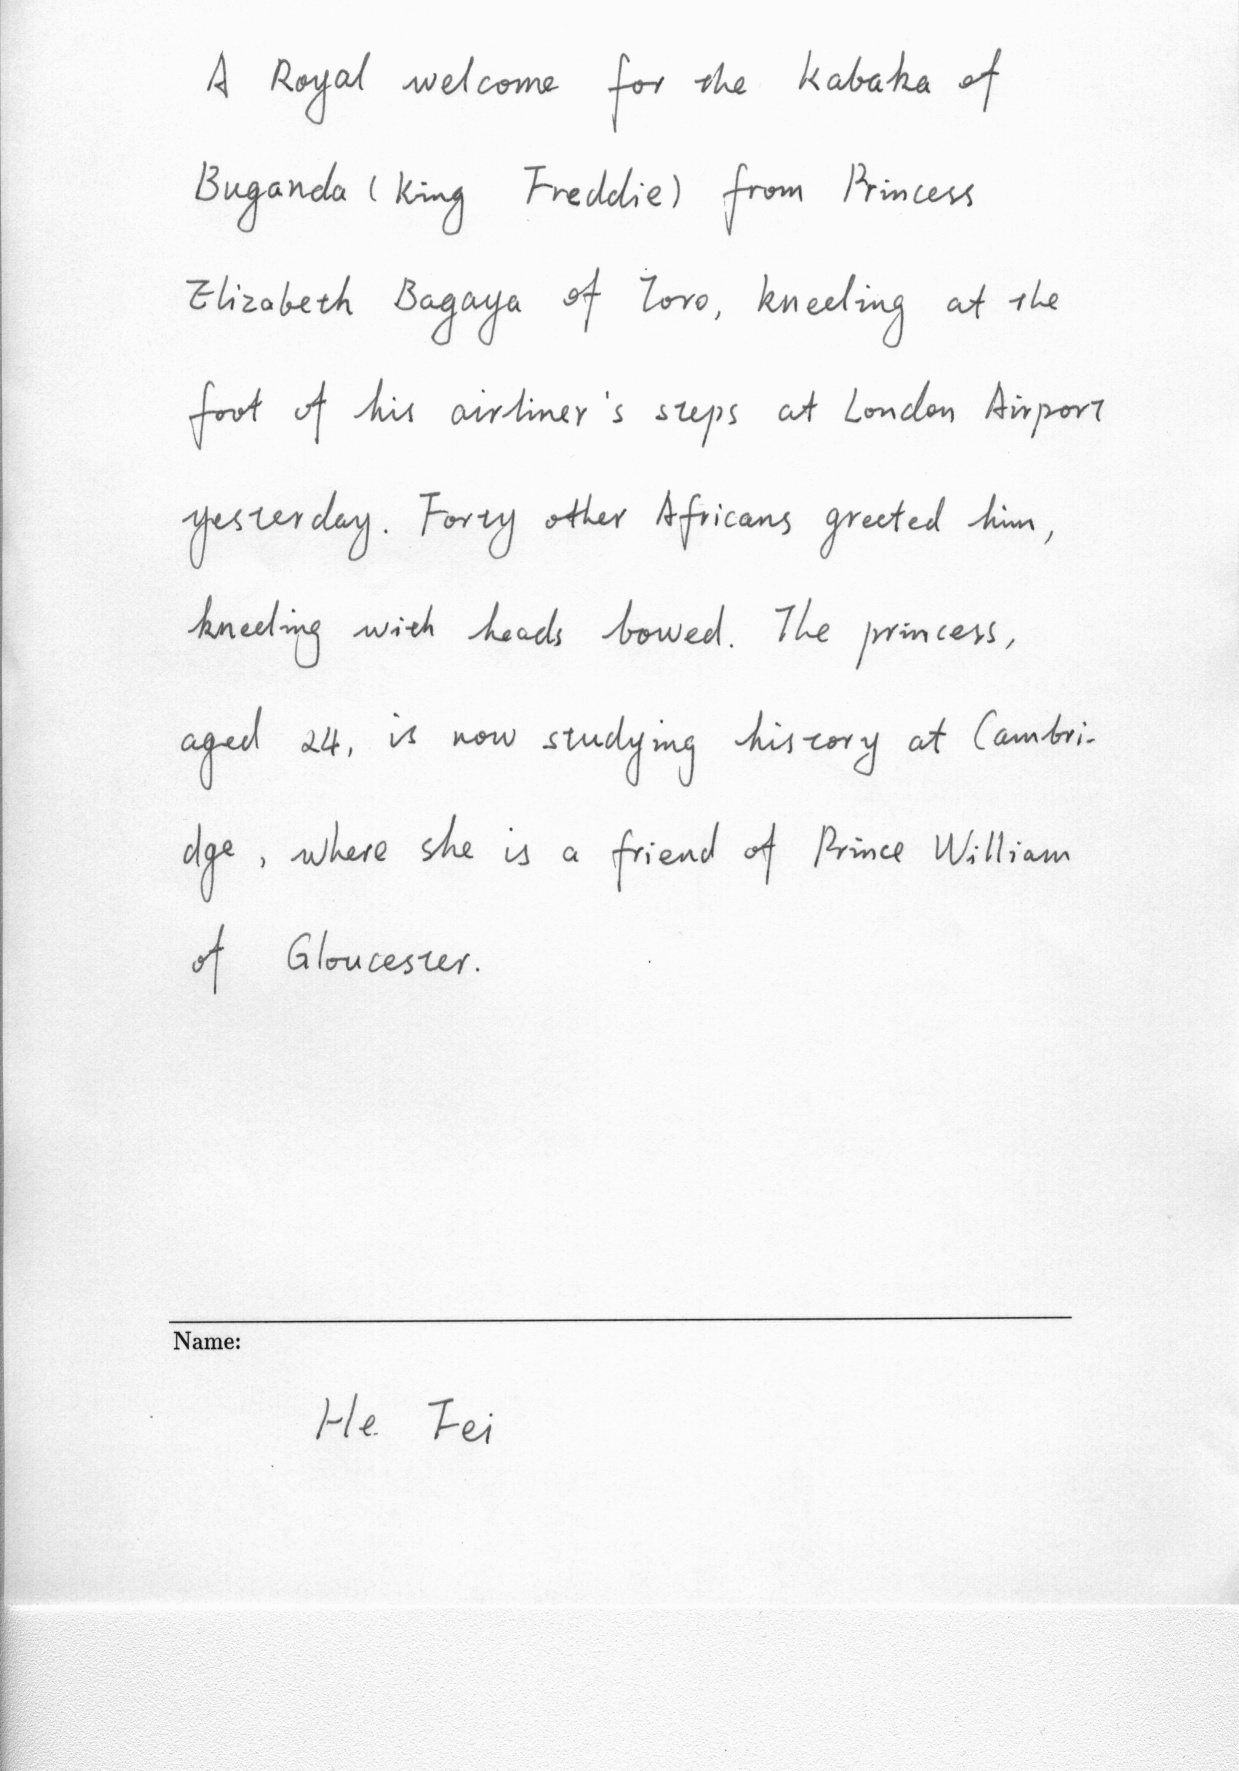 A Royal welcome for the Kabaka of
Buganda (King Freddie) from Princess
Elizabeth Bagaya of Toro, kneeling at the
foot of his airliner's steps at London Airport
yesterday. Forty other Africans greeted him,
kneeling with heads bowed. The princess,
aged 24, is now studying history at Cambri-
dge, where she is a friend of Prince William
of Gloucester.
Name:
He Fei